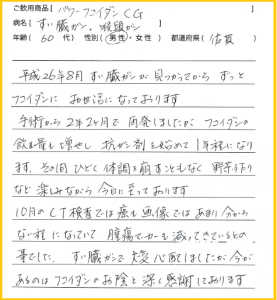 ご飲用商品[ パワーフコイダンCG ]
病名[ すい臓ガン・喉頭ガン ]
年齢( 60 代) 性別(男性・女性) 都道府県( 佐賀 )
平成26年8月 すい臓ガンが見つかってから ずっと
フコイダンに お世話になっております
手術から2年2ヶ月で 再発しましたが フコイダンの
飲む量も増やし 抗ガン剤を始めて1年程になり
ます、その間ひどく体調を崩すこともなく 野菜作り
など 楽しみながら 今日に至っております
10月のCT検査では癌も画像ではあまり分から
ない程になっていて 腫瘍マーカーも減ってきているとの
事でした、すい臓ガンで大変心配しましたが今が
あるのはフコイダンのお陰と深く感謝しております